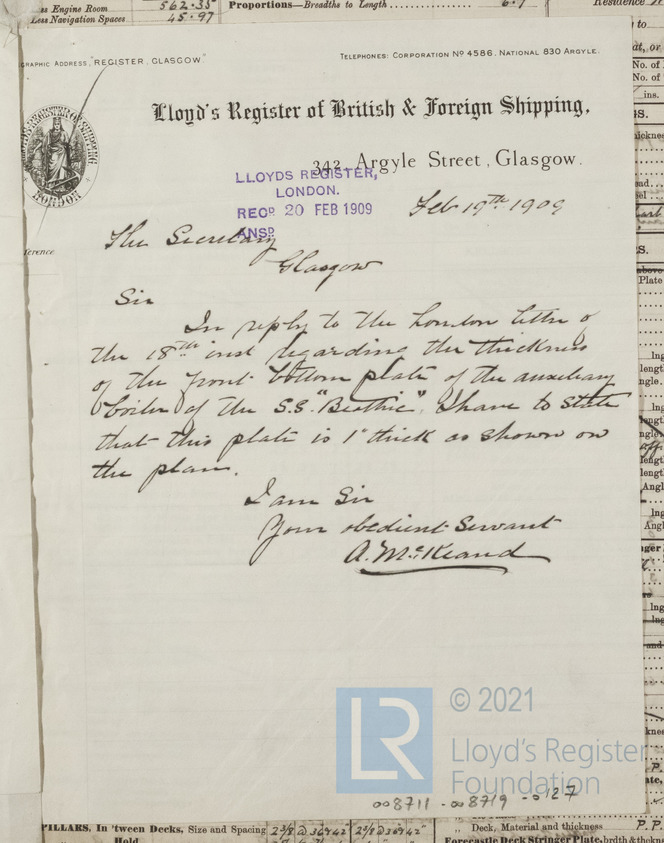 ss Engine Room 562.35
Less Navigation Spaces 45.97
Proportions—Breadths to Length
Residence
GRAPHIC ADDRESS, "REGISTER, GLASGOW."
TELEPHONES: CORPORATION No 4586. NATIONAL 830 ARGYLE.
Lloyd's Register of British & Foreign Shipping,
342, Argyle Street, Glasgow.
LLOYDS REGISTER,
LONDON.
RECD. 20 FEB 1909
ANSD.
LONDON
Feb 19th 1909
The Secretary
Glasgow
ference
Sir
In reply to the London letter of
the 18th inst regarding the thickness
of the front bottom plate of the auxiliary
boiler of the S.S. "Beothic", I have to state
that this plate is 1" thick as shown on
the plan.
I am Sir
Your obedient Servant
A. McKeand
LR
© 2021
Lloyd's Register
Foundation
008711-008719-0127
PILLARS, In 'tween Decks, Size and Spacing
Hold
" Deck, Material and thickness P.P.
Forecastle Deck Stringer Plate, brdth & thickn